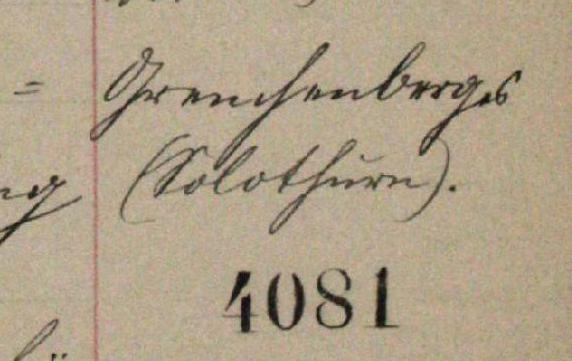 = Grenchenberges
ng (Solothurn).
4081